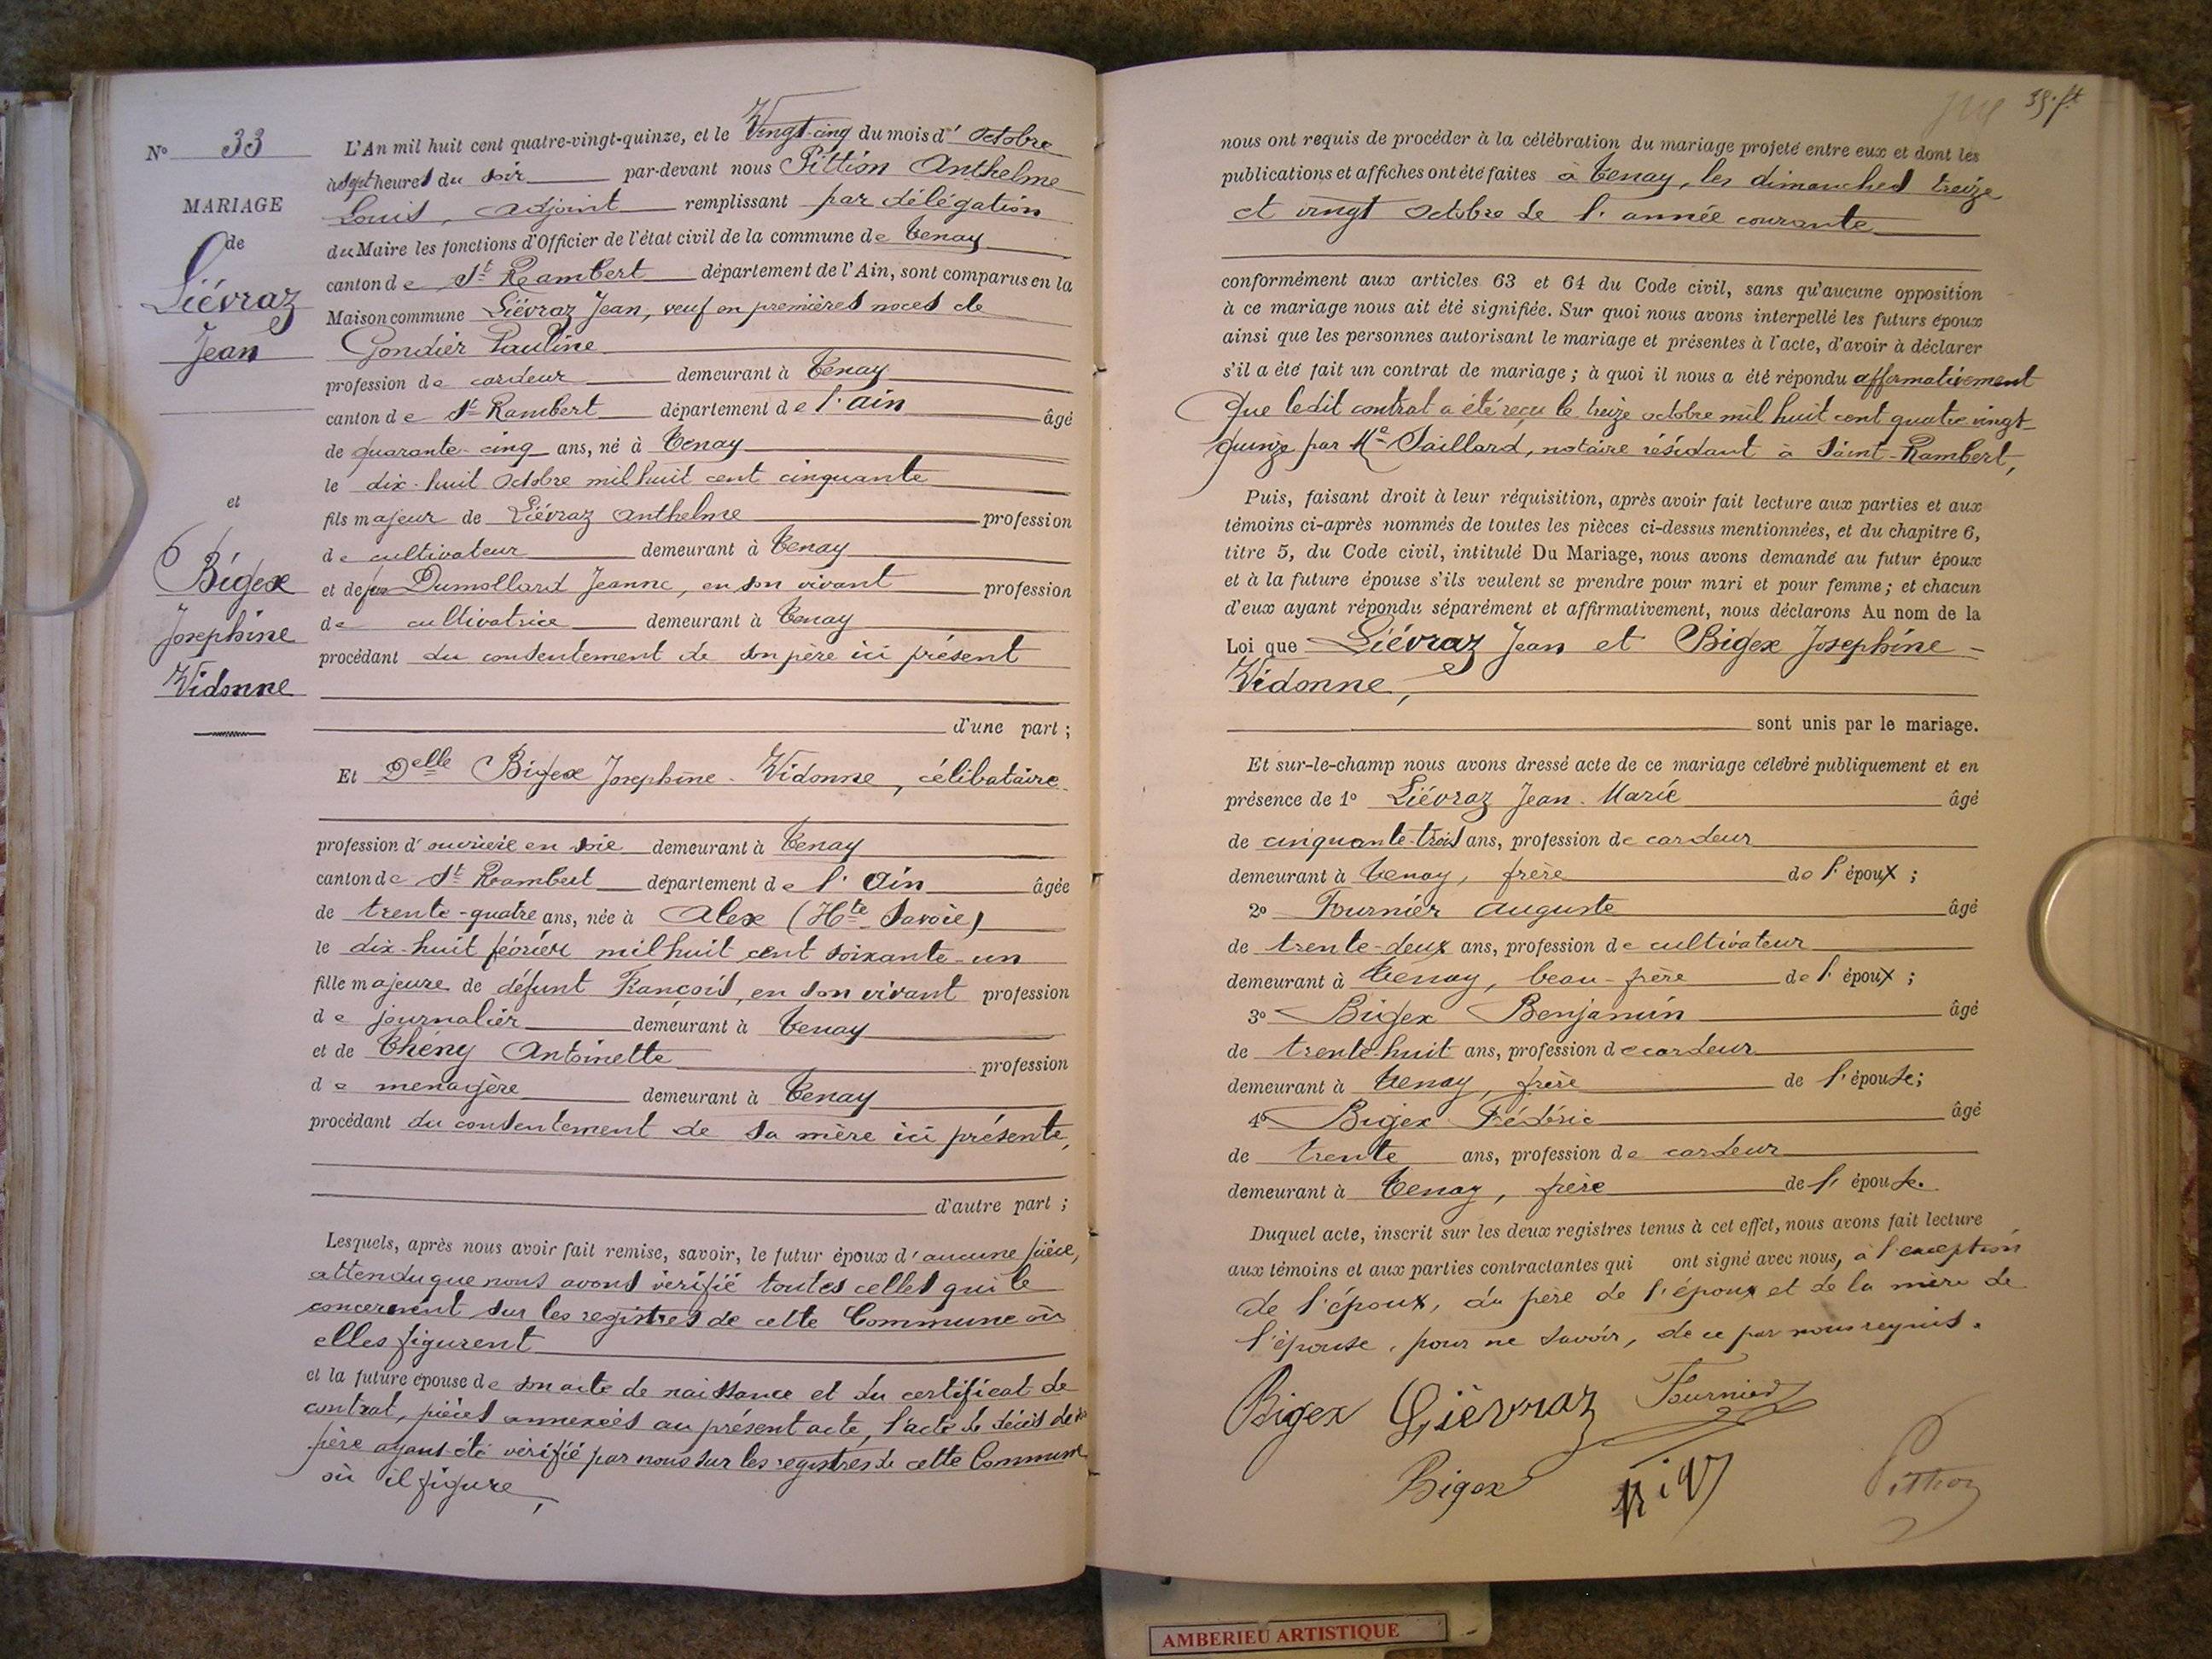 N° 33
MARIAGE
de
Liévraz
Jean
et
Bigex
Josephine
Vidonne
L'An mil huit cent quatre-vingt-quinze, et le Vingt-cinq du mois d' Octobre
à sept heures du soir par-devant nous Pittion Anthelme
Louis, adjoint remplissant par délégation
du Maire les fonctions d'Officier de l'état civil de la commune de Tenay
canton de St Rambert département de l'Ain, sont comparus en la
Maison commune Liévraz Jean, veuf en premières noces de
Gondier Pauline
profession de cardeur demeurant à Tenay
canton de St Rambert département de l'ain âgé
de quarante-cinq ans, né à Tenay
le dix-huit Octobre mil huit cent cinquante
fils majeur de Liévraz Anthelme profession
de cultivateur demeurant à Tenay
et de feu Dumollard Jeanne, en son vivant profession
de cultivatrice demeurant à Tenay
procédant du consentement de son père ici présent
d'une part ;
Et Delle Bigex Josephine-Vidonne, célibataire
profession d' ouvrière en soie demeurant à Tenay
canton de St Rambert département de l'Ain âgée
de trente-quatre ans, née à Alex (Hte Savoie)
le dix-huit février mil huit cent soixante-un
fille majeure de défunt François, en son vivant profession
de journalier demeurant à Tenay
et de Thény Antoinette profession
de menagère demeurant à Tenay
procédant du consentement de sa mère ici présente,
d'autre part ;
Lesquels, après nous avoir fait remise, savoir, le futur époux d'aucune pièce,
attendu que nous avons vérifié toutes celles qui le
concernent sur les registres de cette Commune où
elles figurent
et la future épouse de son acte de naissance et du certificat de
contrat, pièces annexées au présent acte, l'acte de décès de son
père ayant été vérifié par nous sur les registres de cette Commune
où il figure,
39 ft
nous ont requis de procéder à la célébration du mariage projeté entre eux et dont les
publications et affiches ont été faites à Tenay, les dimanches treize
et vingt Octobre de l'année courante
conformément aux articles 63 et 64 du Code civil, sans qu'aucune opposition
à ce mariage nous ait été signifiée. Sur quoi nous avons interpellé les futurs époux
ainsi que les personnes autorisant le mariage et présentes à l'acte, d'avoir à déclarer
s'il a été fait un contrat de mariage ; à quoi il nous a été répondu affirmativement
que ledit contrat a été reçu le treize octobre mil huit cent quatre vingt
quinze par Me Saillard, notaire résidant à Saint-Rambert,
Puis, faisant droit à leur réquisition, après avoir fait lecture aux parties et aux
témoins ci-après nommés de toutes les pièces ci-dessus mentionnées, et du chapitre 6,
titre 5, du Code civil, intitulé Du Mariage, nous avons demandé au futur époux
et à la future épouse s'ils veulent se prendre pour mari et pour femme ; et chacun
d'eux ayant répondu séparément et affirmativement, nous déclarons Au nom de la
Loi que Liévraz Jean et Bigex Josephine-
Vidonne,
sont unis par le mariage.
Et sur-le-champ nous avons dressé acte de ce mariage célébré publiquement et en
présence de 1° Liévraz Jean-Marie âgé
de cinquante-trois ans, profession de cardeur
demeurant à Tenay, frère de l'époux ;
2° Fournier Auguste âgé
de trente-deux ans, profession de cultivateur
demeurant à Tenay, beau-frère de l'époux ;
3° Bigex Benjamin âgé
de trente-huit ans, profession de cardeur
demeurant à Tenay, frère de l'épouse ;
4° Bigex Frédéric âgé
de trente ans, profession de cardeur
demeurant à Tenay, frère de l'épouse.
Duquel acte, inscrit sur les deux registres tenus à cet effet, nous avons fait lecture
aux témoins et aux parties contractantes qui ont signé avec nous, à l'exception
de l'époux, du père de l'époux et de la mère de
l'épouse, pour ne savoir, de ce par nous requis.
Bigex Liévraz Fournier
Bigex Pittion
AMBERIEU ARTISTIQUE